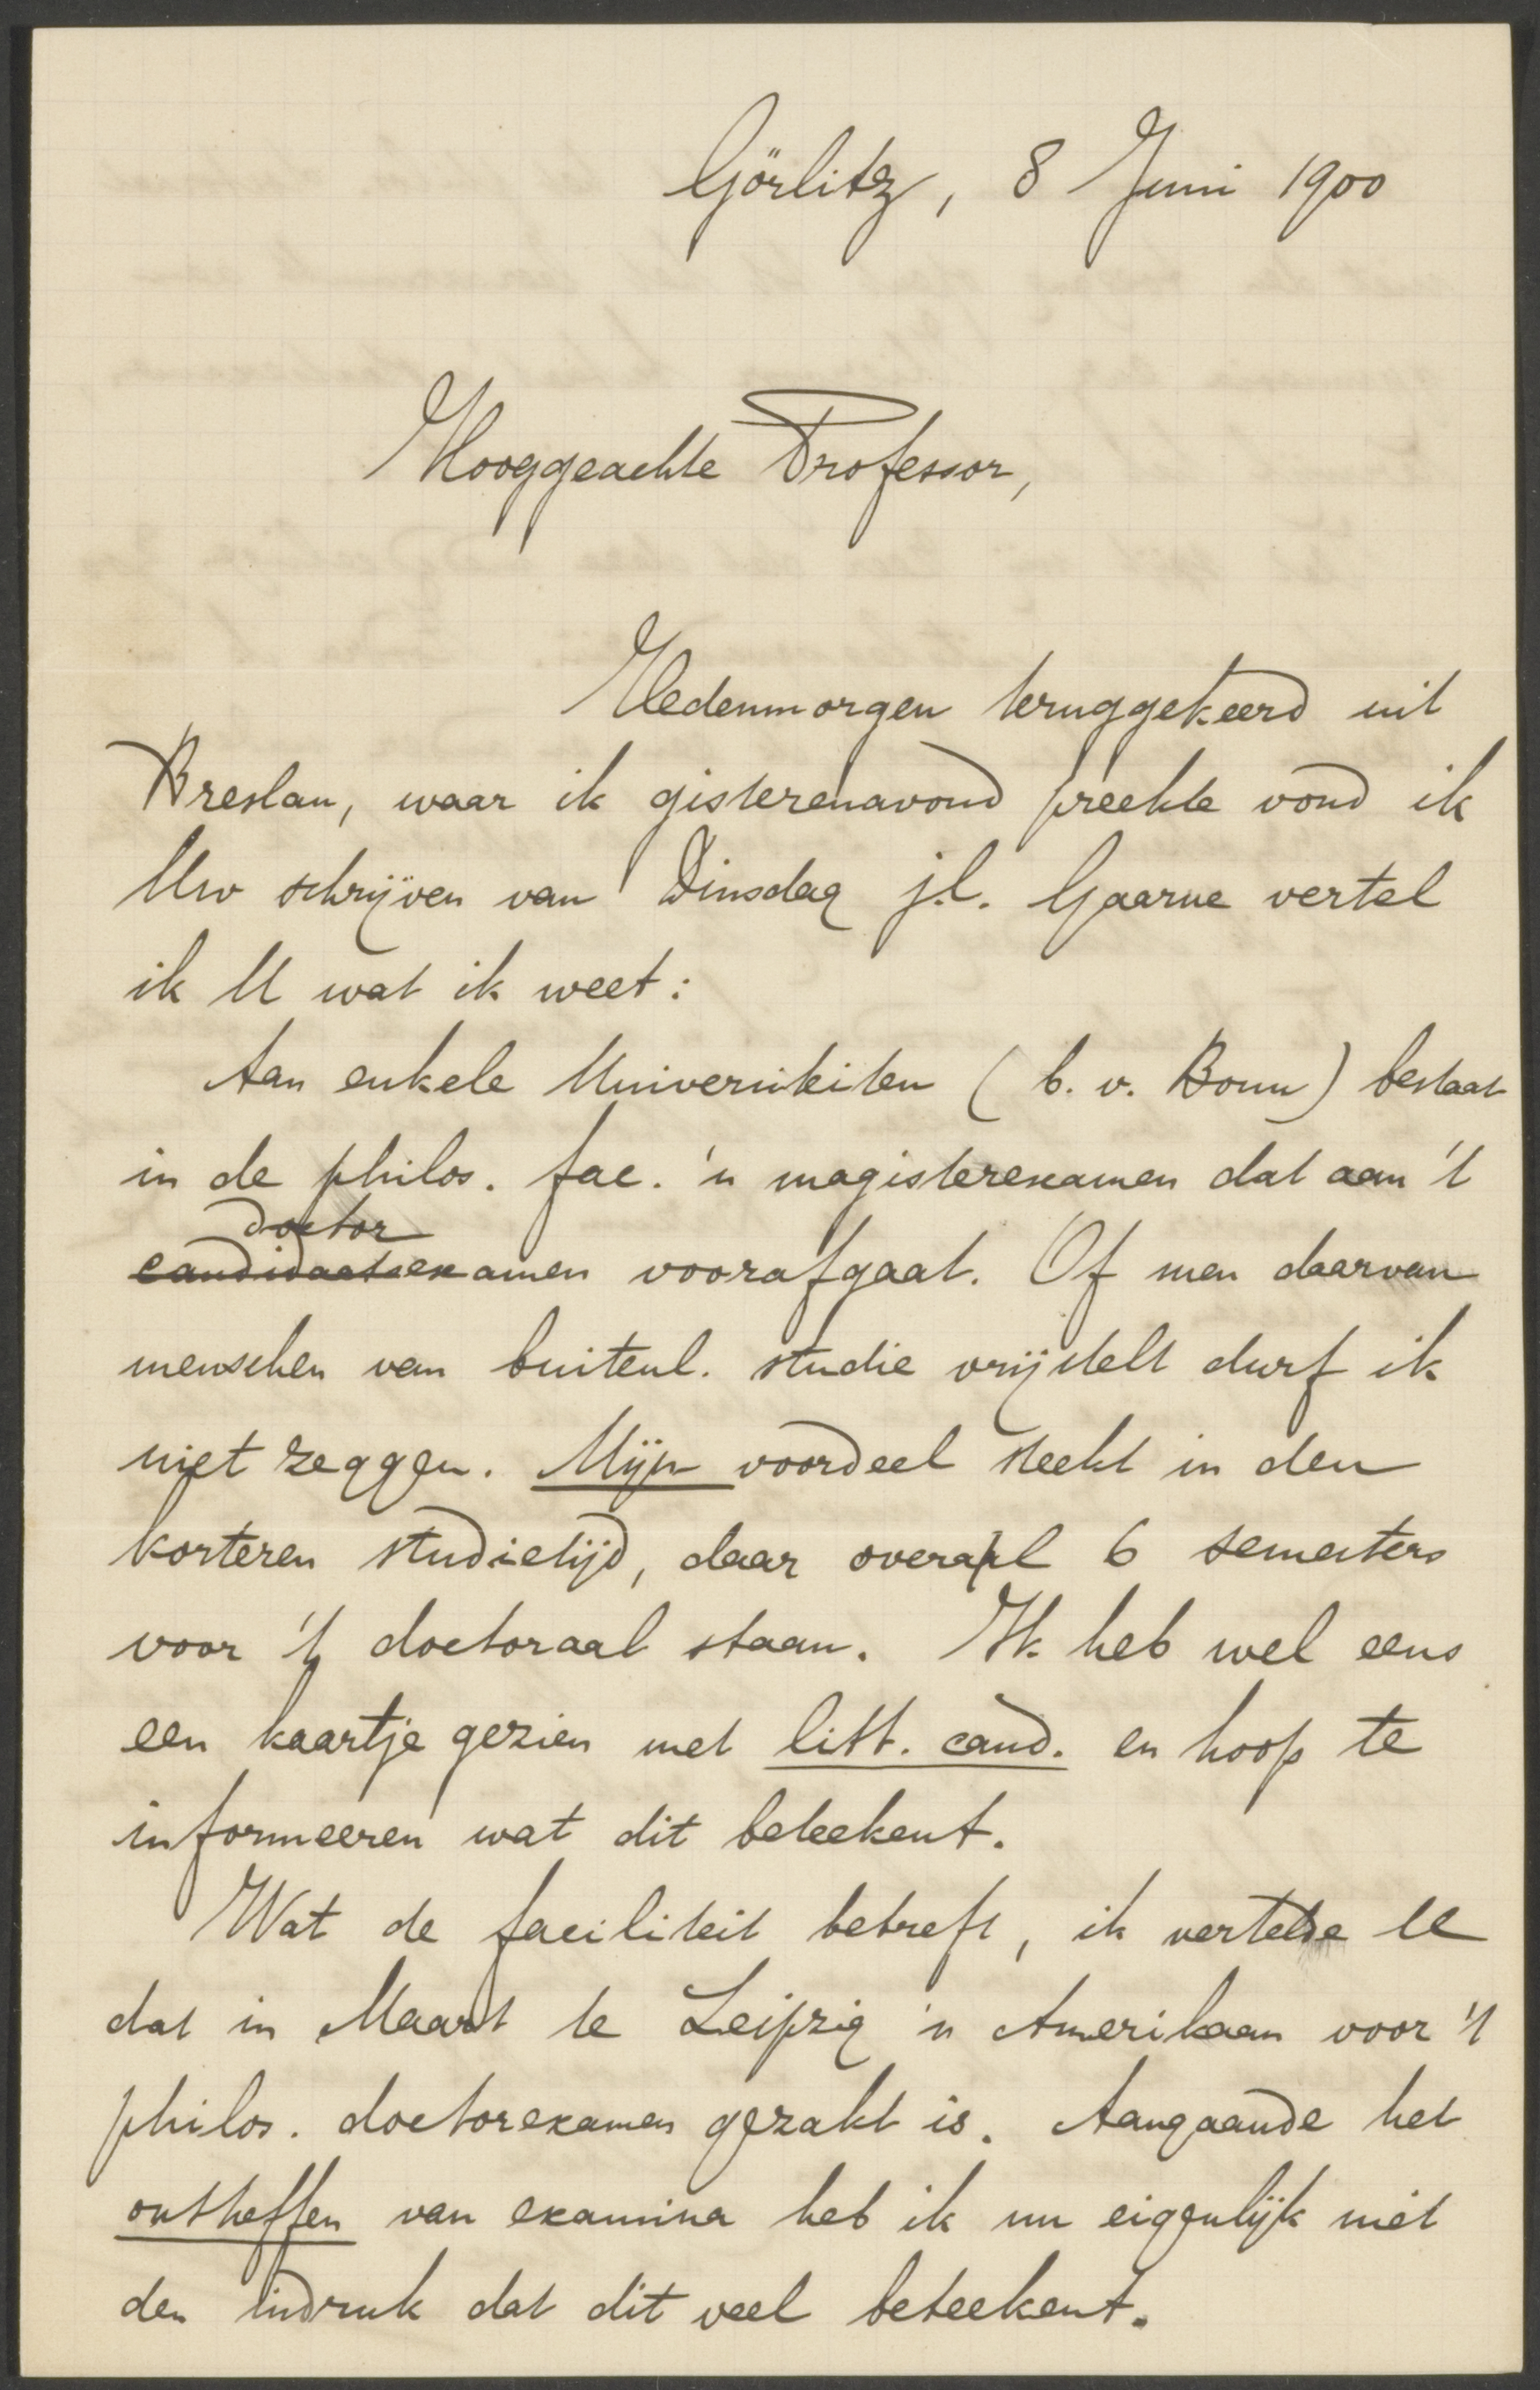 Görlitz, 8 Juni 1900
Hooggeachte Professor,
Hedenmorgen teruggekeerd uit
Breslau, waar ik gisterenavond preekte vond ik
Uw schrijven van Dinsdag j.l. Gaarne vertel
ik U wat ik weet:
Aan enkele Universiteiten (b. v. Bonn) bestaat
in de philos. fac. 'n magisterexamen dat aan 't
doctor
candidaatsexamen voorafgaat. Of men daarvan
menschen van buitenl. studie vrijstelt durf ik
niet zeggen. Mijn voordeel steekt in den
korteren studietijd, daar overal 6 semesters
voor 't doctoraal staan. Ik heb wel eens
een kaartje gezien met litt. cand. en hoop te
informeeren wat dit beteekent.
Wat de faciliteit betreft, ik vertelde U
dat in Maart te Leipzig 'n Amerikaan voor 't
philos. doctorexamen gezakt is. Aangaande het
ontheffen van examina heb ik nu eigenlijk niet
den indruk dat dit veel beteekent.